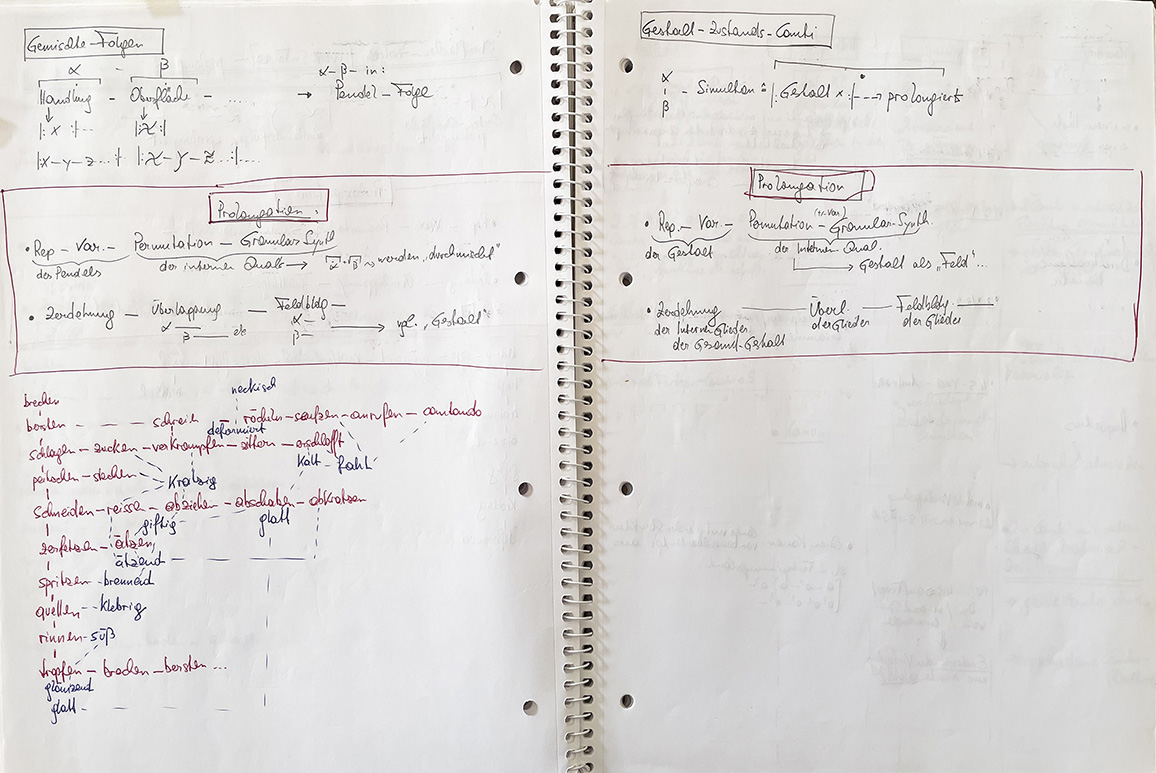 Gemischte Folgen
α - β
Handlung - Oberfläche - .... → α-β-in: Pendel-Folge
|: x :|--- |: x̄ :|
|: x-y-z...:| |: x̄-ȳ-z̄...:|....
Prolongation:
• Rep - Var. - Permutation - Granular-Synth
des Pendels der internen Quals → ᾱ·β̄ ~ werden "durchmischt"
• Zerdehnung - Überlappung - Feldbldg -
α
β etc
α
β → vgl. "Gestalt"
neckisch
brechen
bersten - schreien - röcheln - seufzen - anrufen - cantando
deformiert
schlagen - zucken - verkrampfen - zittern - erschlafft
kalt - fahl
peitschen - stechen
Kratzig
schneiden - reissen - abziehen - abschaben - abkratzen
giftig glatt
zerfetzen - ätzen,
ätzend
spritzen - brennend
quellen - klebrig
rinnen - süß
tropfen - brechen - bersten ...
glänzend
glatt
Gestalt-Zustands-Combi
α
β - Simultan: |: Gestalt x :| ---→ prolongiert
Prolongation
(tr. Var.)
• Rep. - Var. - Permutation - Granular-Synth.
der Gestalt der internen Qual.
→ Gestalt als "Feld"...
• Zerdehnung - Überl. - Feldbldg.
der internen Glieder der Glieder der Glieder
der Gesamt-Gestalt